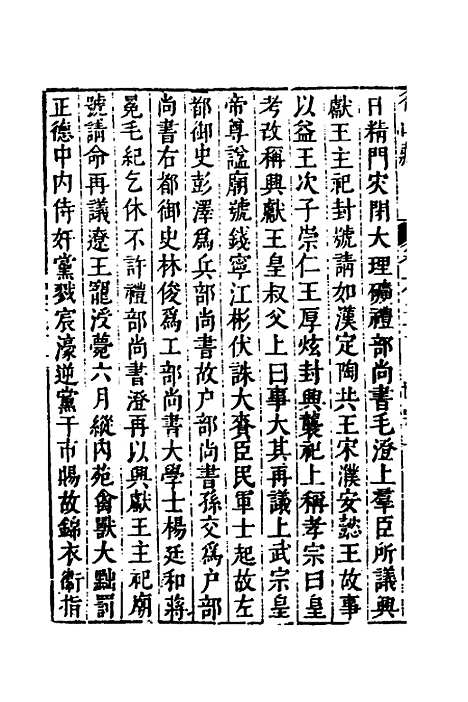 日精門災閉大理礦禮部尚書毛澄上羣臣所議興
獻王主祀封號請如漢定陶共王宋濮安懿王故事
以益王次子崇仁王厚炫封興襲祀上稱孝宗曰皇
考改稱興獻王皇叔父上曰事大其再議上武宗皇
帝尊諡廟號錢寧江彬伏誅大賚臣民軍士起故左
都御史彭澤爲兵部尚書故户部尚書孫交爲户部
尚書右都御史林俊爲工部尚書大學士楊廷和蔣
冕毛紀乞休不許禮部尚書澄再以興獻王主祀廟
號請命再議遼王寵涭薨六月縱内苑禽獸大黜罰
正德中内侍奸黨戮宸濠逆黨于市賜故錦衣衞指